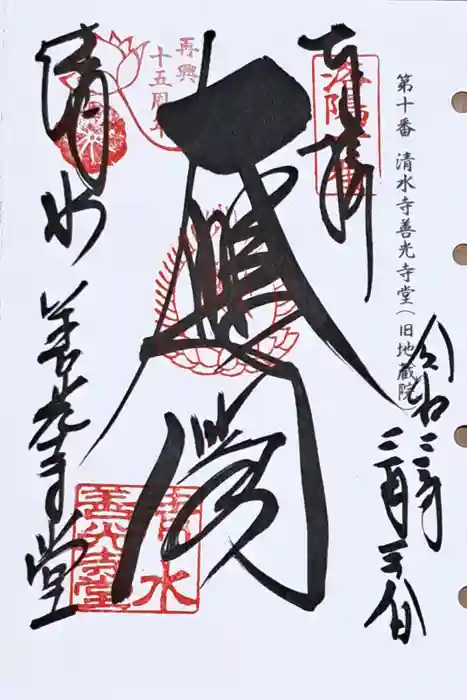 第十番 清水寺善光寺堂(旧地蔵院)
奉拝
令和二年
二月
大悲閣
再興
十五周年
清水 善光寺堂
清水
善光寺堂